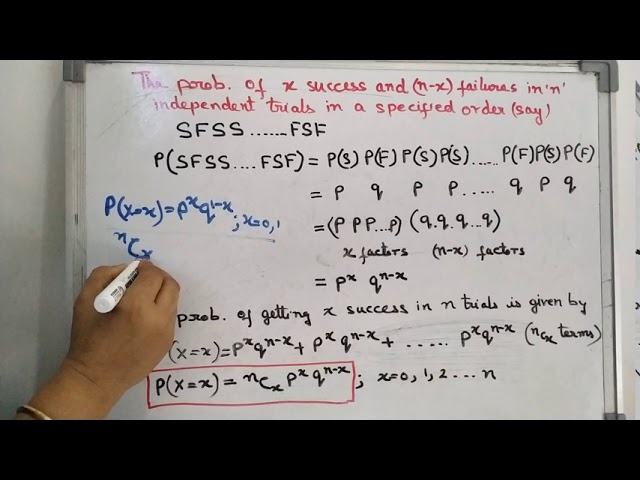 The prob. of x success and (n-x) failures in 'n'
independent trials in a specified order (say)
SFSS ...... FSF
P(SFSS .... FSF) = P(S) P(F) P(S) P(S) ...... P(F) P(S) P(F)
= p q p p ..... q p q
P(X=x) = p^x q^{1-x} ; x=0,1
= (p p p ... p) (q. q. q ... q)
x factors (n-x) factors
ⁿCₓ
= p^x q^{n-x}
prob. of getting x success in n trials is given by
(X=x) = p^x q^{n-x} + p^x q^{n-x} + ..... p^x q^{n-x} (ⁿCₓ terms)
P(X=x) = ⁿCₓ p^x q^{n-x} ; x=0, 1, 2 ... n